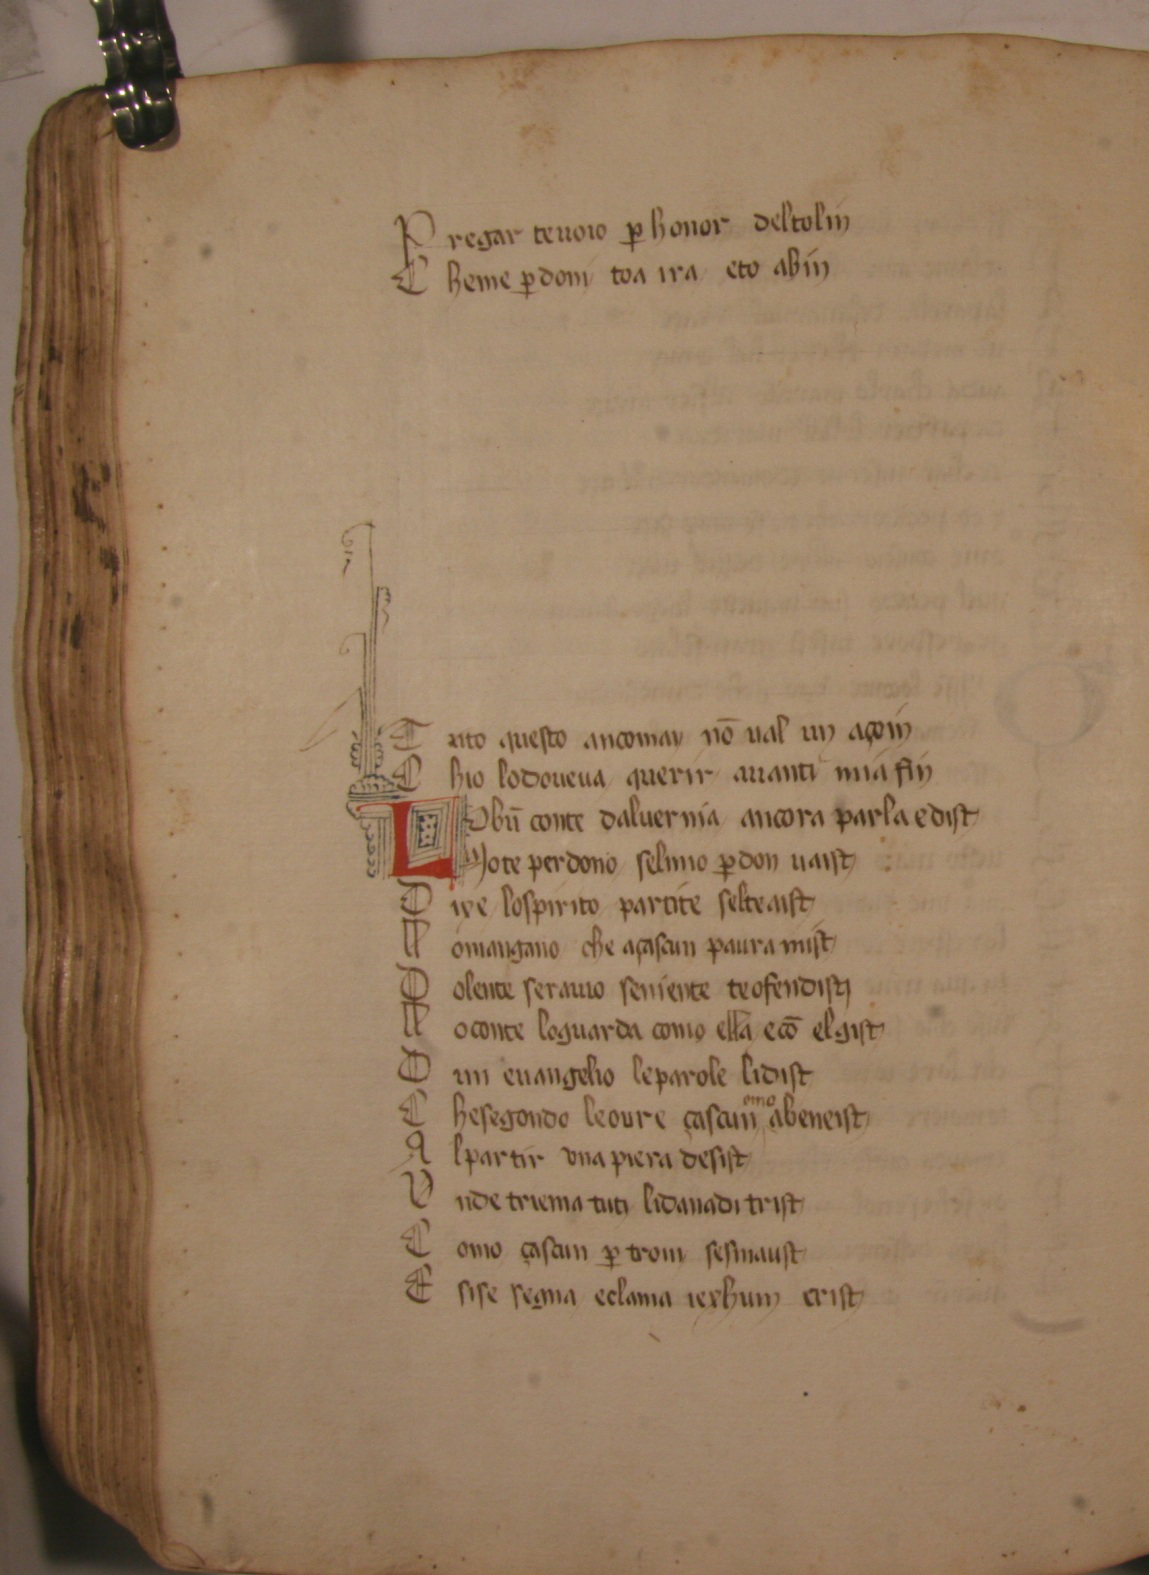 P regar teuoio ꝑ honor deltolin
C heme ꝑdoni toa ira eto abin
T uto questo ancomai nō ual un açoin
C hio lodoueua querir auanti mia fin
L Obū conte daluernia ancora parla edist
Note perdono selmio ꝑdon uaist
D ixe lospirito partite selteaist
R omangano che açascun paura mist
D olente serauio seniente teofendisti
R oconte loguarda como ella ecō elgist
D un euangelio leparole lidist
C hesegondo leoure çascun omo abeneist
A lpartir una piera desist
V nde triema tuti lidanadi trist
C omo çascun ꝑ trom sesmauist
E sise segna eclama iexhum crist